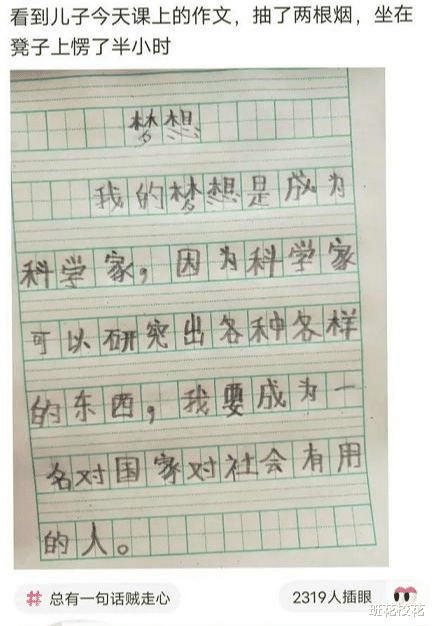 看到儿子今天课上的作文，抽了两根烟，坐在
凳子上愣了半小时
梦想
我的梦想是成为
科学家，因为科学家
可以研究出各种各样
的东西，我要成为一
名对国家对社会有用
的人。
# 总有一句话贼走心
2319人插眼
班花校花